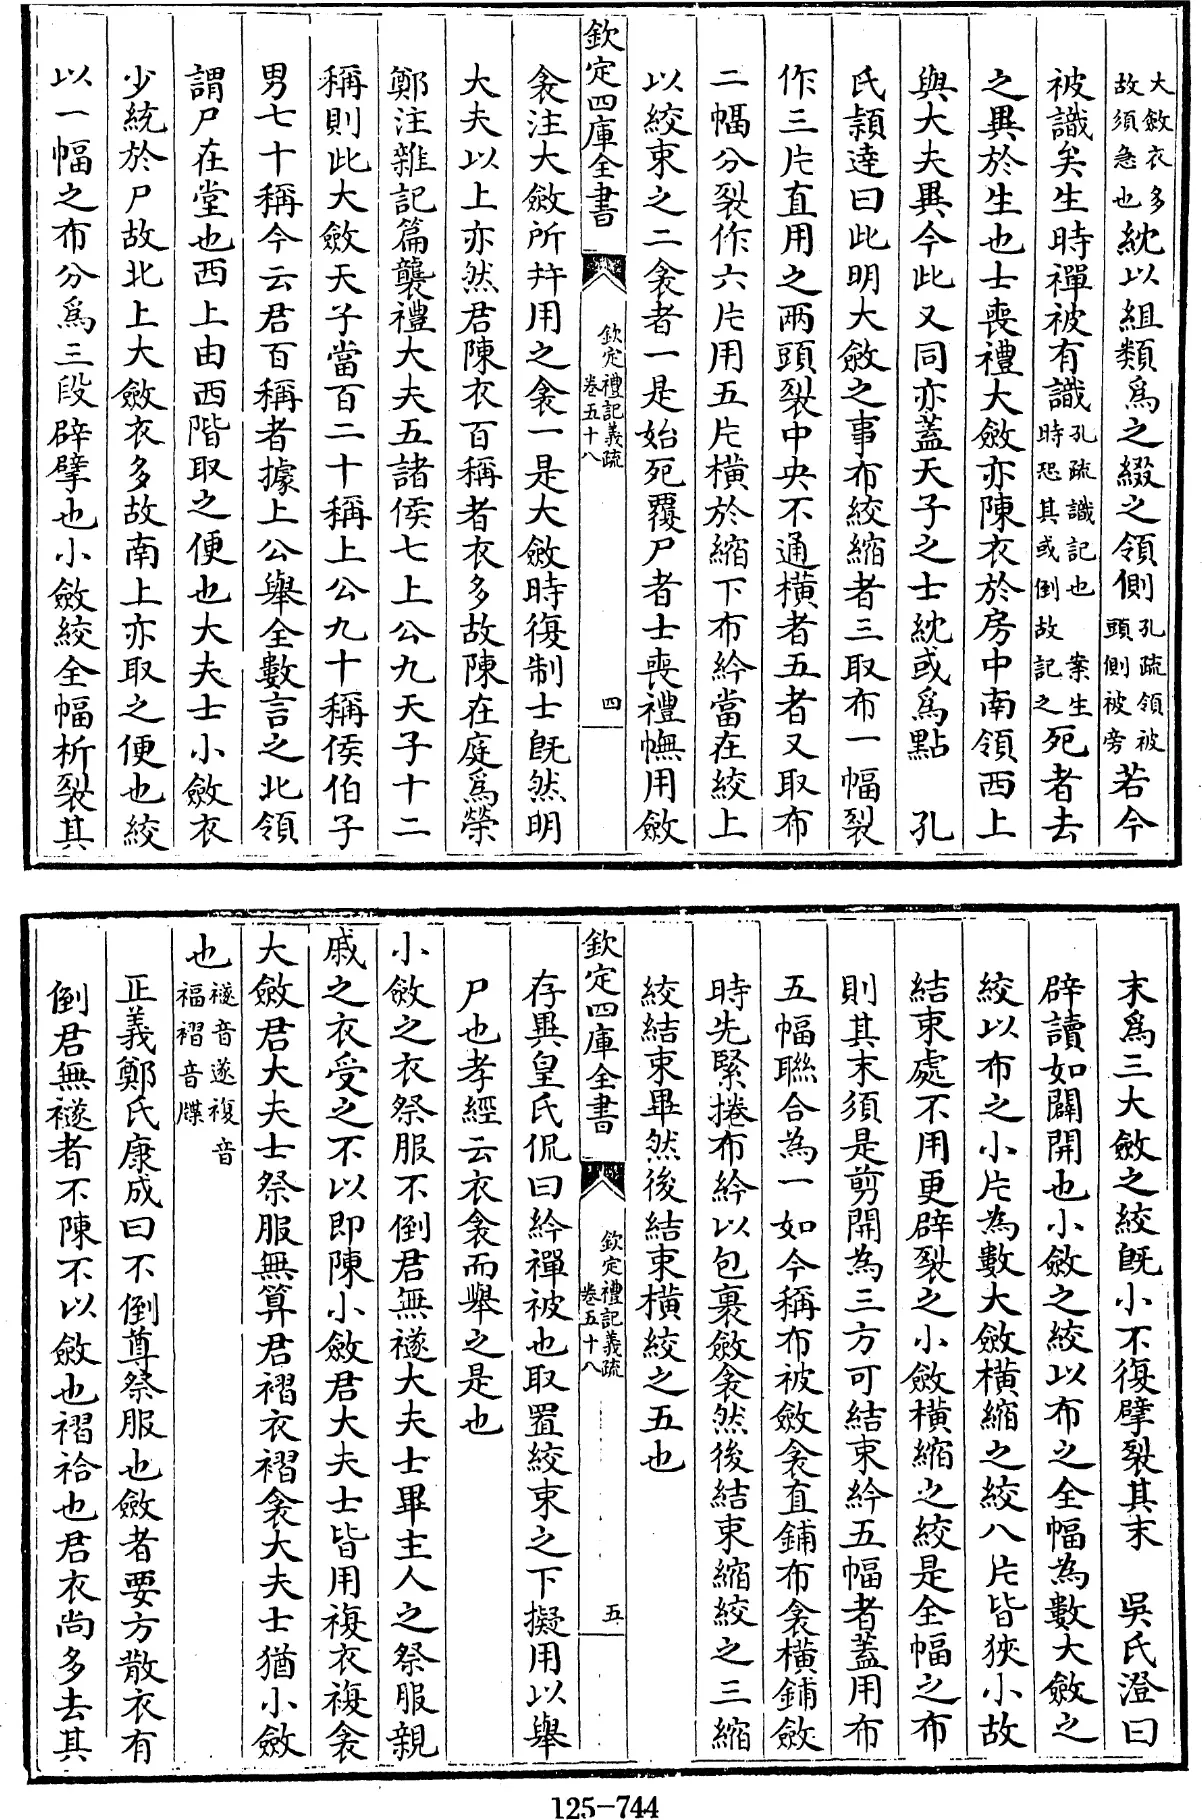 大斂衣多故須急也紞以組類爲之綴之領側孔疏領被頭側被旁若今
被識矣生時襌被有識孔疏識記也時恐其或倒故記之案生死者去
之異於生也士喪禮大斂亦陳衣於房中南領西上
與大夫異今此又同亦蓋天子之士紞或爲點　孔
氏頴達曰此明大斂之事布絞縮者三取布一幅裂
作三片直用之兩頭裂中央不通橫者五者又取布
二幅分裂作六片用五片橫於縮下布紟當在絞上
以絞束之二衾者一是始死覆尸者士喪禮幠用斂
欽定四庫全書
欽定禮記義疏
卷五十八
四
衾注大斂所幷用之衾一是大斂時復制士旣然明
大夫以上亦然君陳衣百稱者衣多故陳在庭爲榮
鄭注雜記篇襲禮大夫五諸侯七上公九天子十二
稱則此大斂天子當百二十稱上公九十稱侯伯子
男七十稱今云君百稱者據上公舉全數言之北領
謂尸在堂也西上由西階取之便也大夫士小斂衣
少統於尸故北上大斂衣多故南上亦取之便也絞
以一幅之布分爲三段辟擘也小斂絞全幅析裂其
末爲三大斂之絞旣小不復擘裂其末　吳氏澄曰
辟讀如闢開也小斂之絞以布之全幅為數大斂之
絞以布之小片為數大斂橫縮之絞八片皆狹小故
結束處不用更辟裂之小斂橫縮之絞是全幅之布
則其末須是剪開為三方可結束紟五幅者蓋用布
五幅聯合為一如今稱布被斂衾直鋪布衾橫鋪斂
時先緊捲布紟以包裹斂衾然後結束縮絞之三縮
絞結束畢然後結束橫絞之五也
欽定四庫全書
欽定禮記義疏
卷五十八
五
存異皇氏侃曰紟襌被也取置絞束之下擬用以舉
尸也孝經云衣衾而舉之是也
小斂之衣祭服不倒君無襚大夫士畢主人之祭服親
戚之衣受之不以即陳小斂君大夫士皆用複衣複衾
大斂君大夫士祭服無算君褶衣褶衾大夫士猶小斂
也襚音遂複音福褶音牒
正義鄭氏康成曰不倒尊祭服也斂者要方散衣有
倒君無襚者不陳不以斂也褶袷也君衣尚多去其
125-744